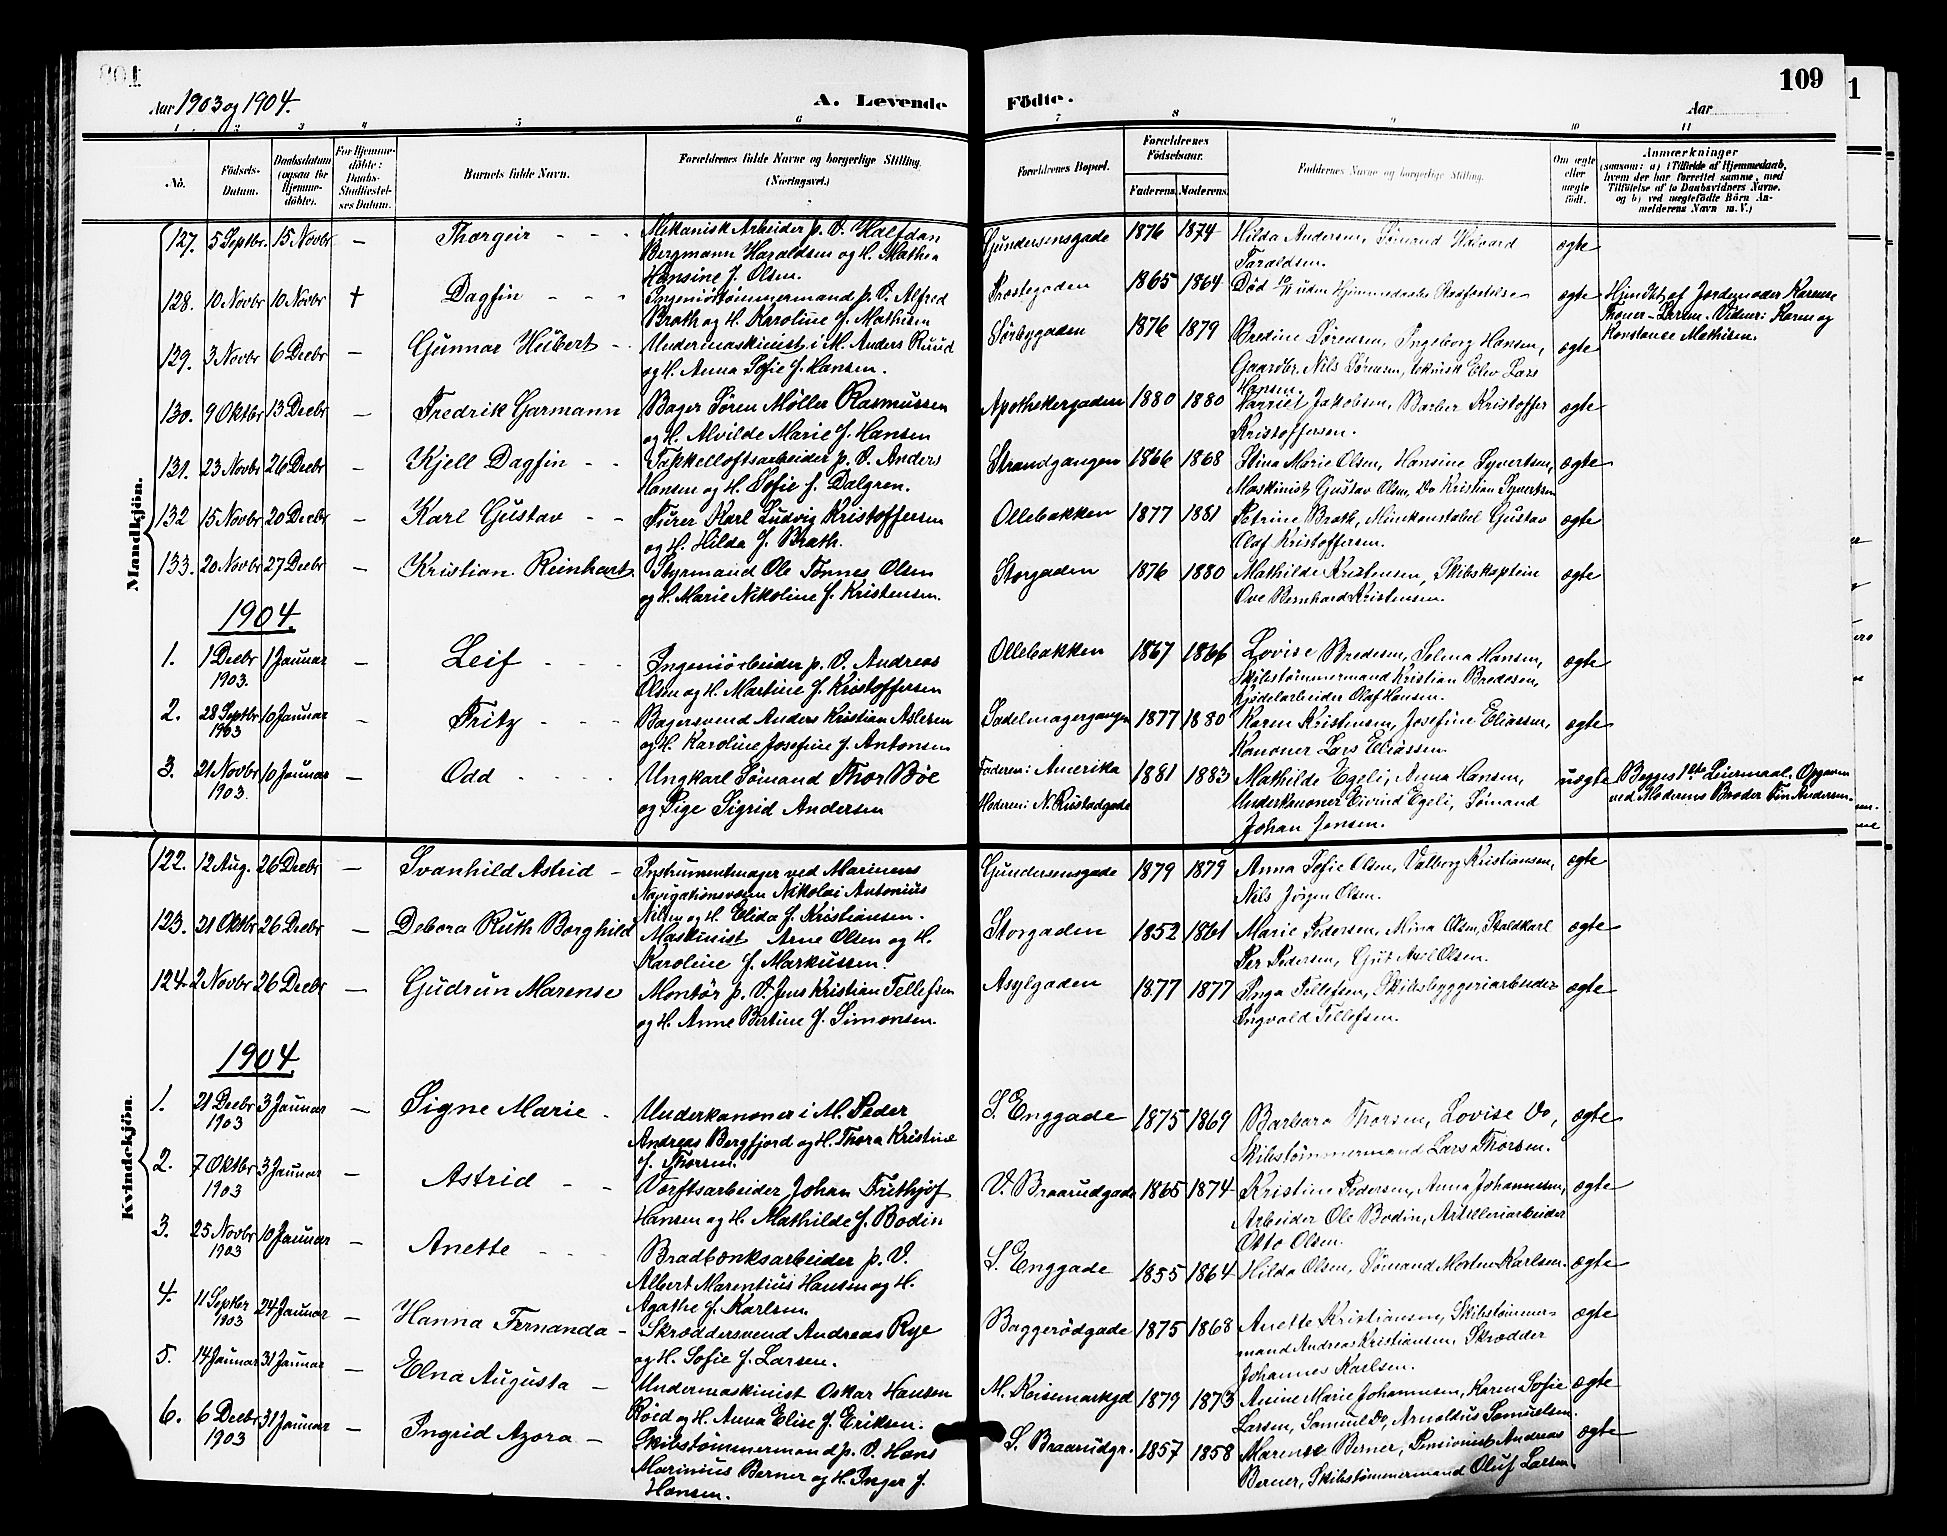 109
Aar 1903 og 1904.
A. Levende
Fødte.
Aar
1 2 3 4 5 6 7 8 9 10 11
No.
Fødsels-Datum.
Daabsdatum (ogsaa for Hjemmedøbte).
For Hjemmedøbte: Daabs-Stadfæstelses Datum.
Barnets fulde Navn.
Forældrenes fulde Navne og borgerlige Stilling. (Næringsvei.)
Forældrenes Bopæl.
Forældrenes Fødselsaar.
Faderens. Moderens.
Faddernes Navne og borgerlige Stilling.
Om ægte eller uægte født.
Anmærkninger
(saasom: a) i Tilfælde af Hjemmedaab, hvem der har forrettet samme, med Tilføielse af to Daabsvidners Navne, og b) ved uægtefødte Børn Anmelderens Navn m. V.)
Mandkjøn.
127. 5 Septbr. 15 Novbr — Thorgeir - - - Mekanisk Arbeider p. V. Halfdan Gundersensgade 1876 1874 Hilda Andersen, Sømand Halvard ægte
Bergmann Haraldsen og H. Mathea Taraldsen.
Hansine f. Olsen.
128. 10 Novbr 10 Novbr + Dagfin - - - Ingeniørtømmermand p. V. Alfred Prestegaden 1865 1864 Død uden Hjemmedaabs Stadfæstelse ægte Hjmdbt af Jordemoder Karense
Brath og H. Karoline f. Mathisen Thoner-Larsen. Vidner: Karen og
Konstanse Mathisen.
129. 3 Novbr 6 Decbr — Gunnar Hubert - Undermaskinist i M. Anders Ruud Sørbygaden 1876 1879 Bredine Sørensen, Ingeborg Hansen, ægte
og H. Anna Sofie f. Hansen. Gaardbr. Nils Sørensen, teknisk Elev Lars
Hansen.
130. 9 Oktbr 13 Decbr — Fredrik Garmann Bager Søren Møller Rasmussen Apothekergaden 1880 1880 Harriet Jakobsen, Barber Kristoffer ægte
og H. Alvilde Marie f. Hansen Kristoffersen.
131. 23 Novbr 26 Decbr — Kjell Dagfin - - Takkelloftsarbeider p. V. Anders Strandgangen 1866 1868 Stina Marie Olsen, Hansine Syvertsen, ægte
Hansen og H. Sofie f. Dalgren. Maskinist Gustav Olsen, Do Kristian Syvertsen
132 15 Novbr 20 Decbr — Karl Gustav - - Furer Karl Ludvig Kristoffersen Ollebakken 1877 1881 Petrine Brath, Minkonstabel Gustav ægte
og H. Hilda f. Brath. Olaf Kristoffersen.
133. 20 Novbr 27 Decbr — Kristian Reinhart Styrmand Ole Tønnes Olsen Storgaden 1876 1880 Mathilde Kristensen, Skibskaptein ægte
og H. Marie Nikoline f. Kristensen. Ove Bernhard Kristensen.
1904.
1. 1 Decbr 1903. 1 Januar — Leif - - - Ingeniørarbeider p. V. Andreas Ollebakken 1867 1866 Lovise Bredesen, Selma Hansen, ægte
Olsen og H. Martine f. Kristoffersen Skibstømmermand Kristian Bredesen,
Kjedelarbeider Olaf Hansen.
2. 28 Septbr 1903 10 Januar — Fritz - - - Bagersvend Anders Kristian Aslesen Sadelmagergangen 1877 1880 Karen Kristensen, Josefine Eliassen, ægte
og H. Karoline Josefine f. Antonsen Kanoner Lars Eliassen
3. 21 Novbr 1903. 10 Januar — Odd - - - - Ungkarl Sømand Thor Bøe Faderen: Amerika 1881 1883 Mathilde Egeli, Anna Hansen, uægte Begges 1ste Leiermaal. Opgaven
og Pige Sigrid Andersen Moderen: N. Rustadgade Underkanoner Eivind Egeli, Sømand ved Moderens Broder Finn Andersen.
Johan Jensen.
Kvindekjøn.
122. 12 Aug. 26 Decbr — Svanhild Astrid - Instrumentmager ved Marinens Gundersensgade 1879 1879 Anna Sofie Olsen, Valborg Kristiansen, ægte
Navigationsvæsen Nikolai Antonius Nils Jørgen Olsen.
Nilsen og H. Elida f. Kristiansen.
123. 21 Oktbr 26 Decbr — Debora Ruth Borghild Maskinist Arne Olsen og H. Storgaden 1852 1861 Marie Pedersen, Mina Olsen, Staldkarl ægte
Karoline f. Markussen. Per Pedersen, Gut Axel Olsen.
124. 2 Novbr 26 Decbr — Gudrun Marense Montør p. V. Jens Kristian Tellefsen Asylgaden 1877 1877 Inga Tellefsen, Skibsbyggeriarbeider ægte
og H. Anne Bertine f. Simonsen. Ingvald Tellefsen.
1904
1. 21 Decbr 1903 3 Januar — Signe Marie - Underkanoner i M. Peder S. Enggade 1875 1869 Barbara Thorsen, Lovise Do, ægte
Andreas Bergfjord og H. Thora Kristine Skibstømmermand Lars Thorsen.
f. Thorsen.
2. 7 Oktbr 1903 3 Januar — Astrid - - Værftsarbeider Johan Frithjof V. Braarudgade 1865 1874 Kristine Pedersen, Anna Johannesen, ægte
Hansen og H. Mathilde f. Bodin Arbeider Ole Bodin, Artilleriarbeider
Otto Olsen.
3. 25 Novbr 1903 10 Januar — Anette - - - Bradbænksarbeider p. V. S. Enggade 1855 1864 Hilda Olsen, Sømand Morten Karlsen. ægte
Albert Marentius Hansen og H.
Agathe f. Karlsen.
4. 11 Septber 1903 24 Januar — Hanna Fernanda - Skræddersvend Andreas Rye Baggerødgade 1875 1868 Anette Kristiansen, Skibstømmer- ægte
og H. Sofie f. Larsen. mand Andreas Kristiansen, Skrædder
Johannes Karlsen.
5. 14 Januar 31 Januar — Elna Augusta - Undermaskinist Oskar Hansen M. Keisemarkgd 1879 1873 Anine Marie Johannesen, Karen Sofie ægte
Røed og H. Anna Elise f. Eriksen. Larsen, Samuel Do, Arnoldus Samuelsen.
6. 6 Decbr 1903 31 Januar — Ingrid Azora - Skibstømmermand p. V. Hans S. Braarudgr. 1857 1858 Marense Berner, Pensionist Andreas ægte
Marinius Berner og H. Inger f. Berner, Skibstømmermand Oluf Larsen.
Hansen.